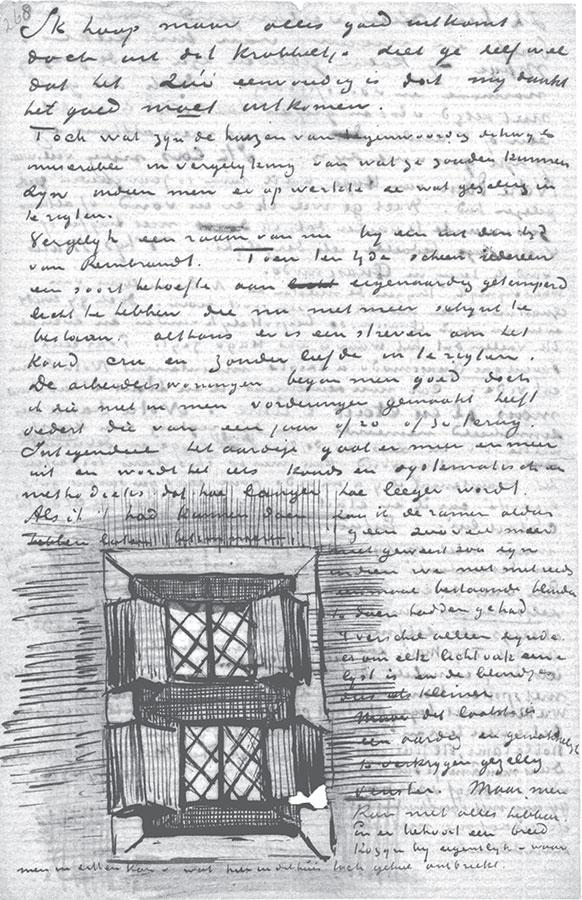 268
Ik hoop maar alles goed uitkomt
doch uit dit krabbeltje ziet ge zelf wel
dat het zóó eenvoudig is dat mij dunkt
het goed moet uitkomen.
Toch wat zijn de huizen van tegenwoordig dikwijls
miserabel in vergelijking van wat ze zouden kunnen
zijn indien men er op werkte ze wat gezellig in
te rigten.
Vergelijk een raam van nu bij een uit den tijd
van Rembrandt. Toen ter tijde scheen iedereen
een soort behoefte aan licht eigenaardig getemperd
licht te hebben die nu niet meer schijnt te
bestaan. althans er is een streven om het
koud cru en zonder liefde in te rigten.
De arbeiderswoningen began men goed doch
ik zie niet in men vorderingen gemaakt heeft
sedert die van een jaar of 20 of 30 terug.
Integendeel het aardige gaat er meer en meer
uit en wordt het iets kouds en systematisch en
methodieks dat hoe langer hoe leeger wordt.
Als ik 't had kunnen doen zou ik de ramen aldus
hebben laten
geen zooveel meer
niet geweest zou zijn
indien we niet met reeds
eenmaal bestaande blinden
te doen hadden gehad
't verschil alleen
er om elk lichtvak eene
lijst is en de blindjes
dus als kleiner
Maar dit laatste is
een aardig en gemakkelijk
te verkrijgen gezellig
venster. Maar men
kan niet alles hebben.
En er behoort een breed
kozijn bij eigenlijk – waar
men in zitten kan – wat hier in dit huis toch geheel ontbreekt.